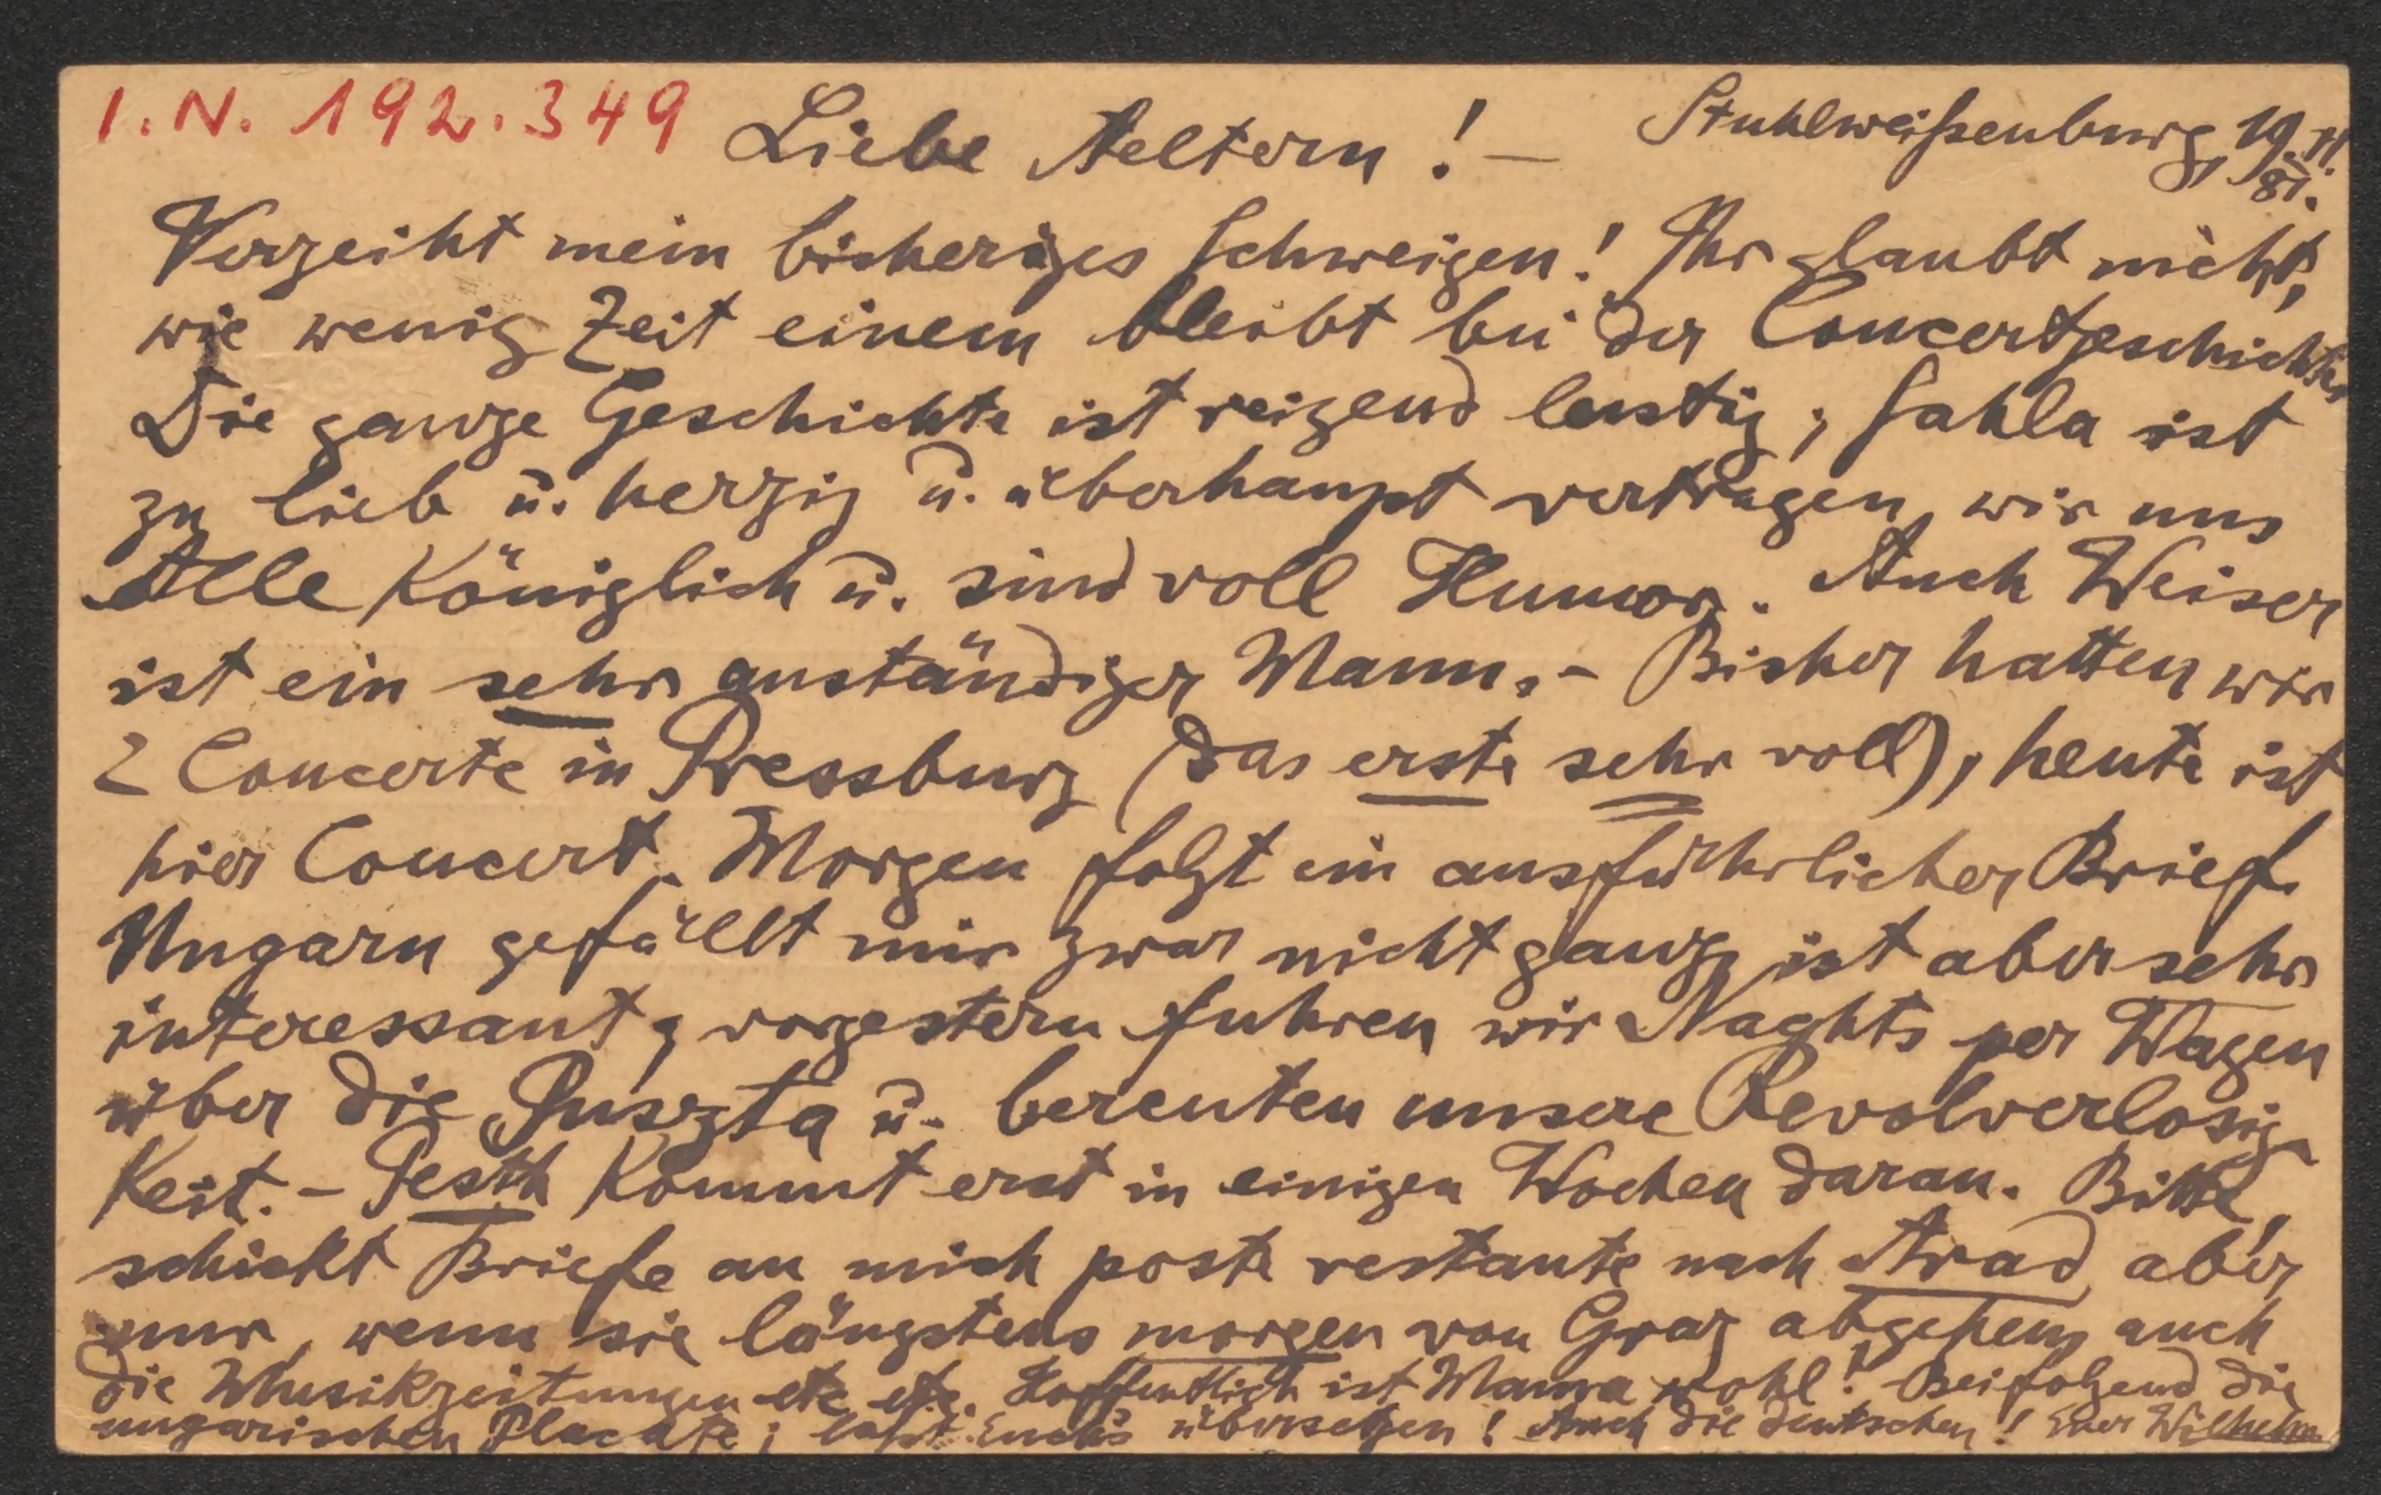 I.N. 192.349
Liebe Aeltern! –
Stuhlweißenburg, 19. 11.
81.
Verzeiht mein bisheriges Schweigen! Ihr glaubt nicht,
wie wenig Zeit einem bleibt bei der Concertgeschichte.
Die ganze Geschichte ist reizend lustig; Sahla ist
zu lieb u. herzig u. überhaupt vertragen wir uns
Alle Königlich u. sind voll Humor. Auch Weiser
ist ein sehr anständiger Mann. – Bisher hatten wir
2 Concerte in Pressburg (das erste sehr voll), heute ist
hier Concert. Morgen folgt ein ausführlicher Brief.
Ungarn gefällt mir zwar nicht ganz, ist aber sehr
interessant; vorgestern fuhren wir Nachts per Wagen
über die Puszta u. bereuten unsere Revolverlosig-
Keit. – Pesth Kommt erst in einigen Wochen daran. Bitte,
schickt Briefe an mich poste restante nach Arad, aber
nur, wenn sie längstens morgen von Graz abgehen, auch
die Musikzeitungen etc etc. Hoffentlich ist Mama wohl! Beifolgend die
ungarischen Placate; laßt Euch's übersetzen! Auch die deutschen! Euer Wilhelm